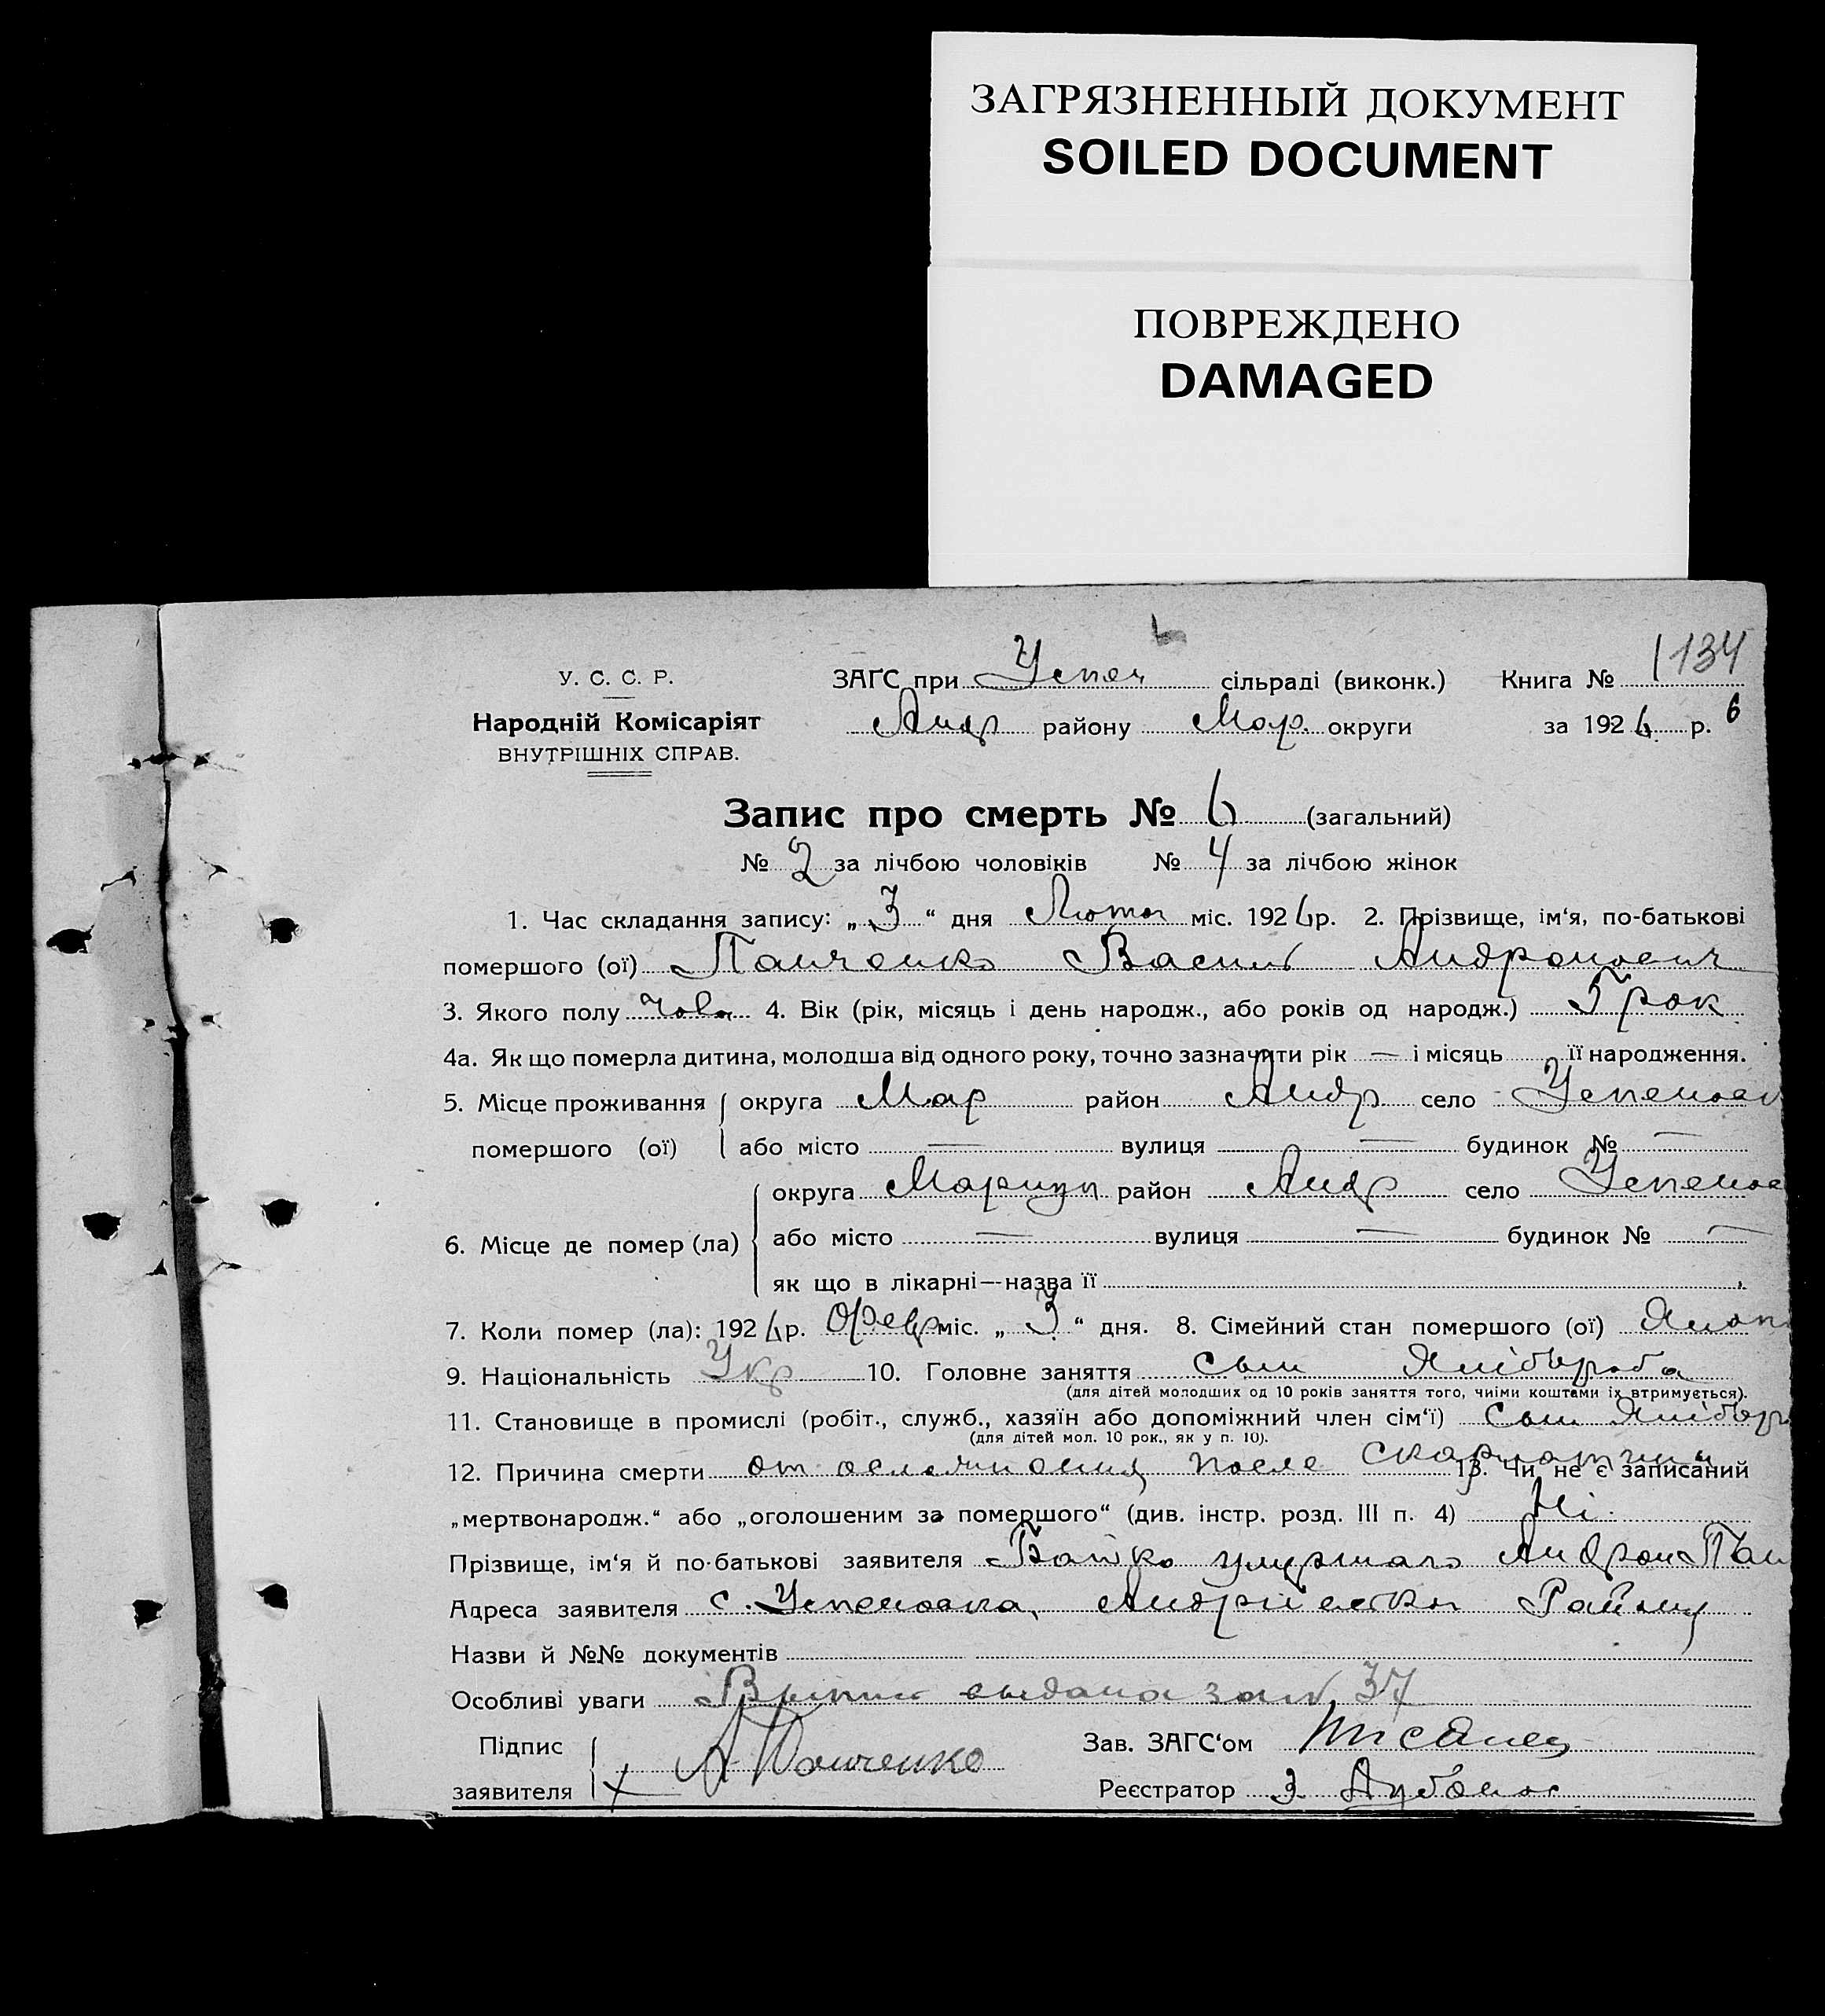 ЗАГРЯЗНЕННЫЙ ДОКУМЕНТ
SOILED DOCUMENT
ПОВРЕЖДЕНО
DAMAGED
У. С. С. Р.
Народній Комісаріят
ВНУТРІШНІХ СПРАВ.
134
ЗАГС при Успен сільраді (виконк.) Книга №
Андр району Мар. округи за 1926 р. 6
Запис про смерть № 6 (загальний)
№ 2 за лічбою чоловіків № 4 за лічбою жінок
1. Час складання запису: „ 3 “ дня Лютого міс. 1926 р. 2. Прізвище, ім‘я, по-батькові
помершого (ої) Панченко Василь Андронович
3. Якого полу Чолов 4. Вік (рік, місяць і день народж., або років од народж.) 5 рок
4а. Як що померла дитина, молодша від одного року, точно зазначити рік — і місяць її народження.
5. Місце проживання округа Мар район Андр село Успеновк
помершого (ої) або місто — вулиця — будинок № —
6. Місце де помер (ла) округа Мариуп район Андр село Успенов
або місто — вулиця — будинок № —
як що в лікарні—назва її
7. Коли помер (ла): 1926 р. Февр міс. „ 3 “ дня. 8. Сімейний стан помершого (ої)
9. Національність Укр 10. Головне заняття сын Хлібороба
(для дітей молодших од 10 років заняття того, чиїми коштами їх втримується).
11. Становище в промислі (робіт., служб., хазяїн або допоміжний член сім‘ї) сын Хлібор
(для дітей мол. 10 рок., як у п. 10).
12. Причина смерти от осложнения после скарлатини 13. Чи не є записаний
„мертвонародж.“ або „оголошеним за помершого“ (див. інстр. розд. III п. 4) Ні.
Прізвище, ім‘я й по-батькові заявителя Батько умершаго Андрон Пан
Адреса заявителя с. Успеновка, Андріївськ Району
Назви й №№ документів
Особливі уваги Выпись выдана за № 37
Підпис заявителя А Панченко Зав. ЗАГС‘ом
Реєстратор З.